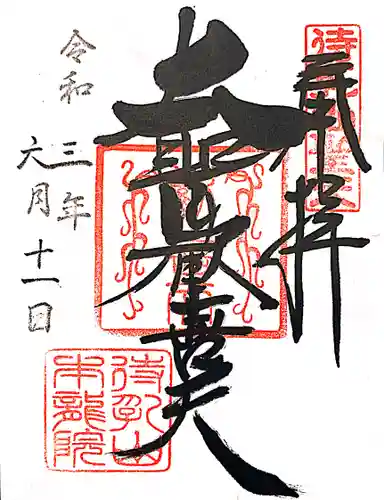 奉拝
歓喜天
令和三年
六月十一日
待乳山
本龍院